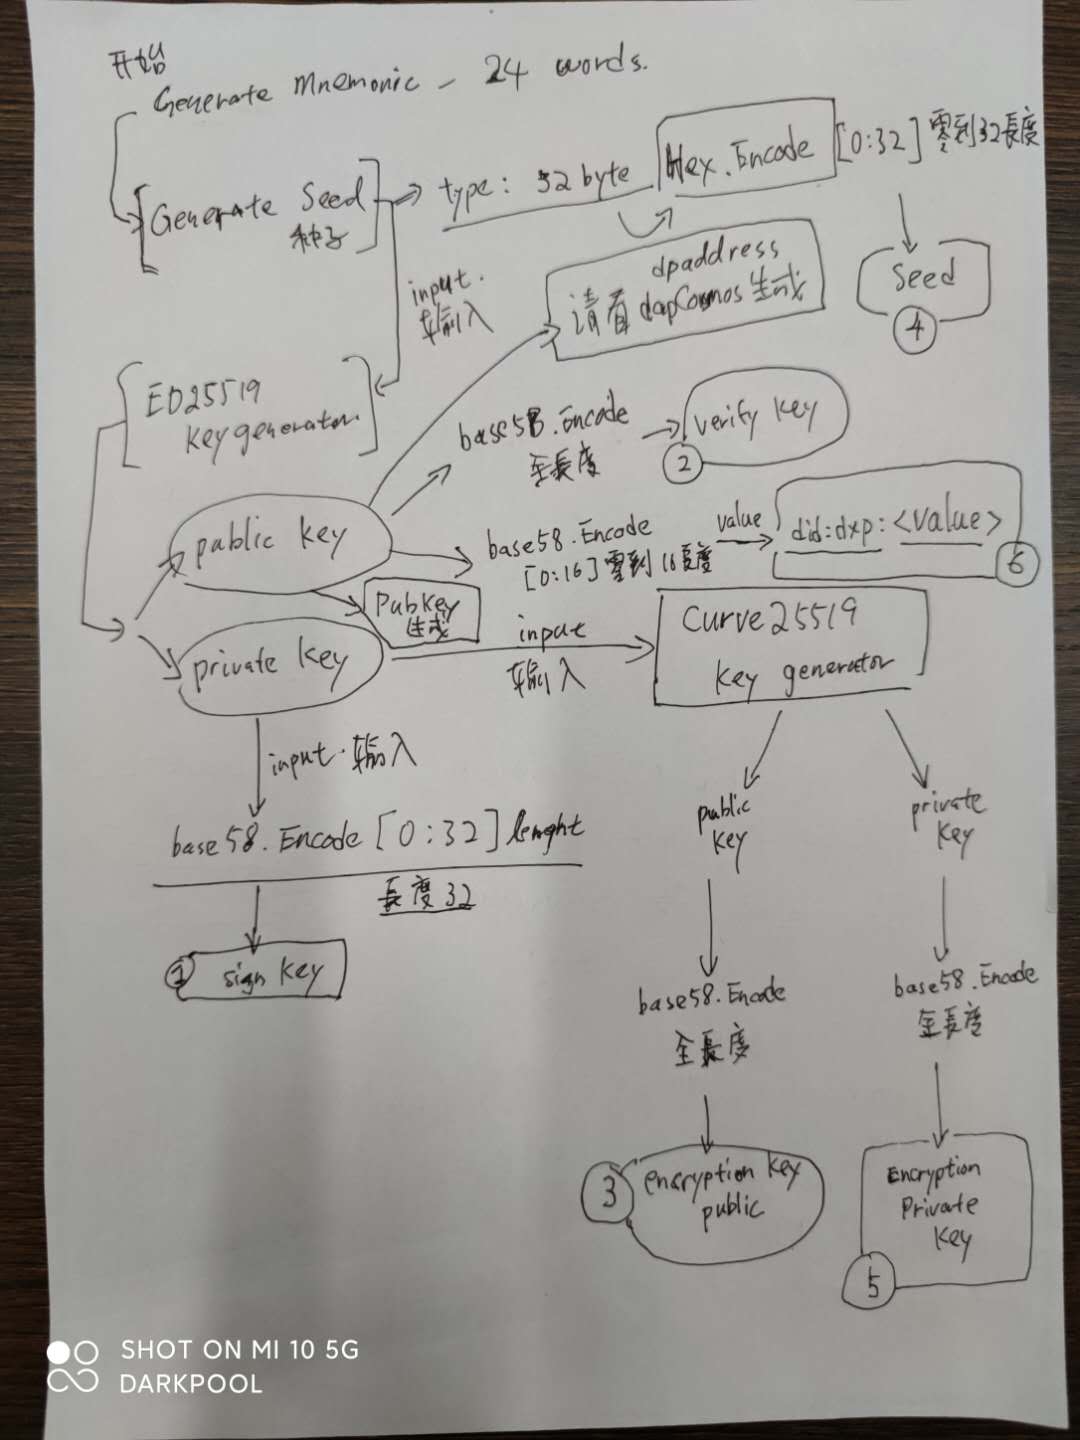 开始
Generate Mnemonic - 24 words.
[Generate Seed] → type: 32 byte Hex.Encode [0:32] 零到32長度
种子
input.
输入
dpaddress
請看 dapCosmos 生成
Seed
4
ED25519
key generator
base58.Encode
全長度
verify key
2
public key
base58.Encode
[0:16] 零到16長度
value
did:dxp:<value>
6
Pubkey
生成
private key
input
输入
Curve25519
key generator
input.输入
base58.Encode [0:32] lenght
長度32
1 sign key
public
key
private
key
base58.Encode
全長度
base58.Encode
全長度
3 encryption key
public
Encryption
Private
Key
5
SHOT ON MI 10 5G
DARKPOOL